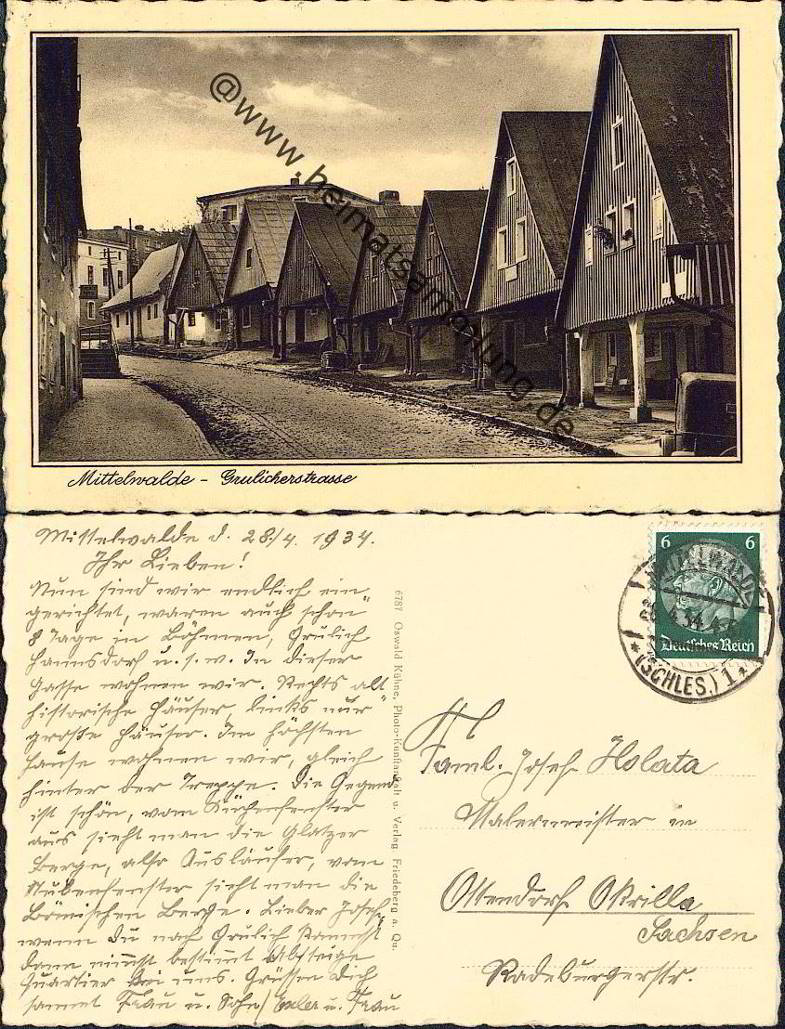 @www.heimatsammlung.de
Mittelwalde - Grulicherstrasse
Mittelwalde d. 28/4. 1934.
Ihr Lieben!
Nun sind wir endlich ein-
gerichtet, waren auch schon
8 Tage in Böhmen, Grulich
Hannsdorf u.s.w. In dieser
Gasse wohnen wir. Rechts alt
historische Häuser, links nur
große Häuser. Im höchsten
Hause wohnen wir, gleich
hinter der Treppe. Die Gegend
ist schön, vom Küchenfenster
aus sieht man die Glatzer
Berge, also Ausläufer, vom
Stubenfenster sieht man die
Bömischen Berge. Lieber Josef,
wenn du nach Grulich kommst
dann nimmst bestimt Absteige
Quartier bei uns. Grüssen Dich
samt Frau u. Sohn/ u. Frau
6787 Oswald Kühne, Photo-Kunstanstalt u. Verlag, Friedeberg a. Qu.
6 6
Deutsches Reich
MITTELWALDE
(SCHLES.) 1
Faml. Josef Holata
Malermeister in
Ottendorf Okrilla
Sachsen
Radeburgerstr.